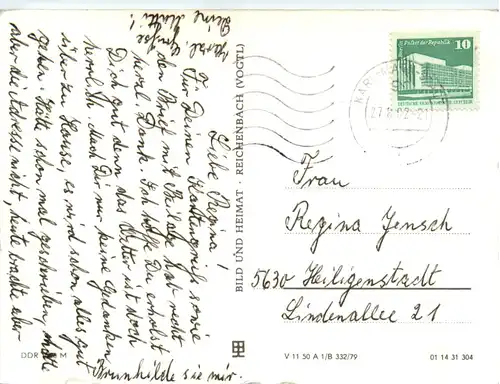 Liebe Regina!
Für Deinen Kartengruß sowie
den Brief mit Beilage Dank recht
herzl. Danke. Ich hoffe Du erholst
Dich gut denn das Wetter ist doch
herrlich. Mach Dir nur keine Gedanken
über zu Hause, es wird schon alles gut
gehen. Hätte schon mal geschrieben, hatte
aber die Adresse nicht, heute brachte aber
Brunhilde sie mir.
Grüße
Deine Mutti!
BILD UND HEIMAT · REICHENBACH (VOGTL)
DDR M
Palast der Republik
10
Frau
Regina Jensch
5630 Heiligenstadt
Lindenallee 21
V 11 50 A 1/B 332/79
01 14 31 304